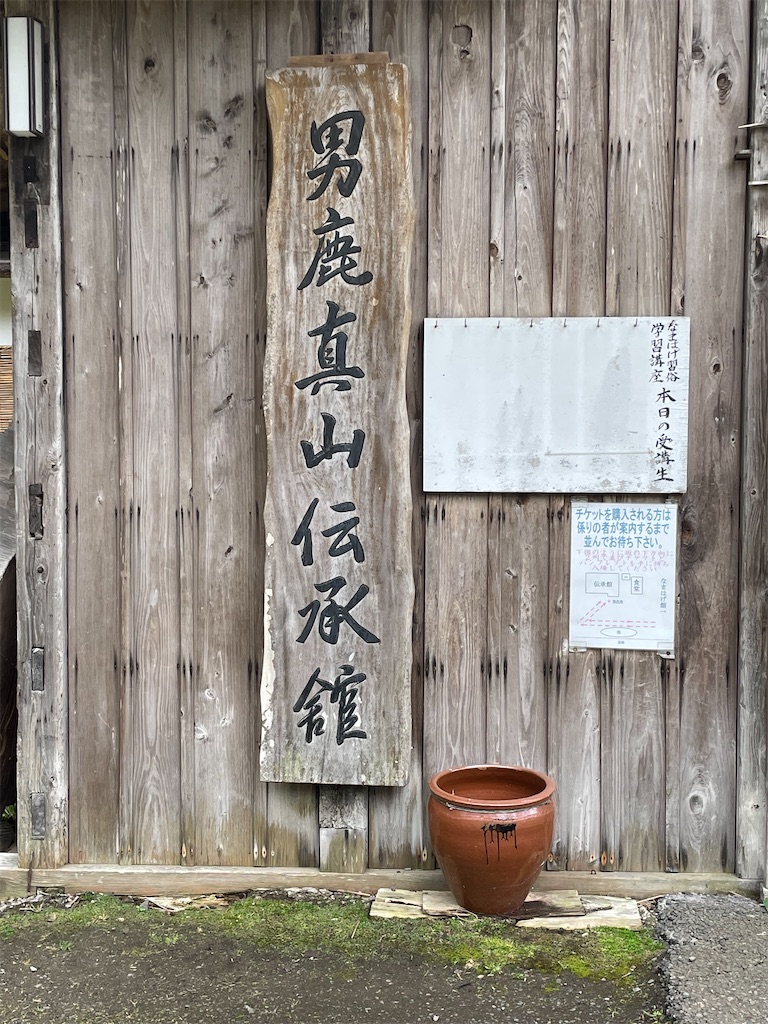 男鹿真山伝承館
なまはげ習俗
学習講座
本日の受講生
チケットを購入される方は
係りの者が案内するまで
並んでお待ち下さい。
伝承館
食堂
なまはげ館